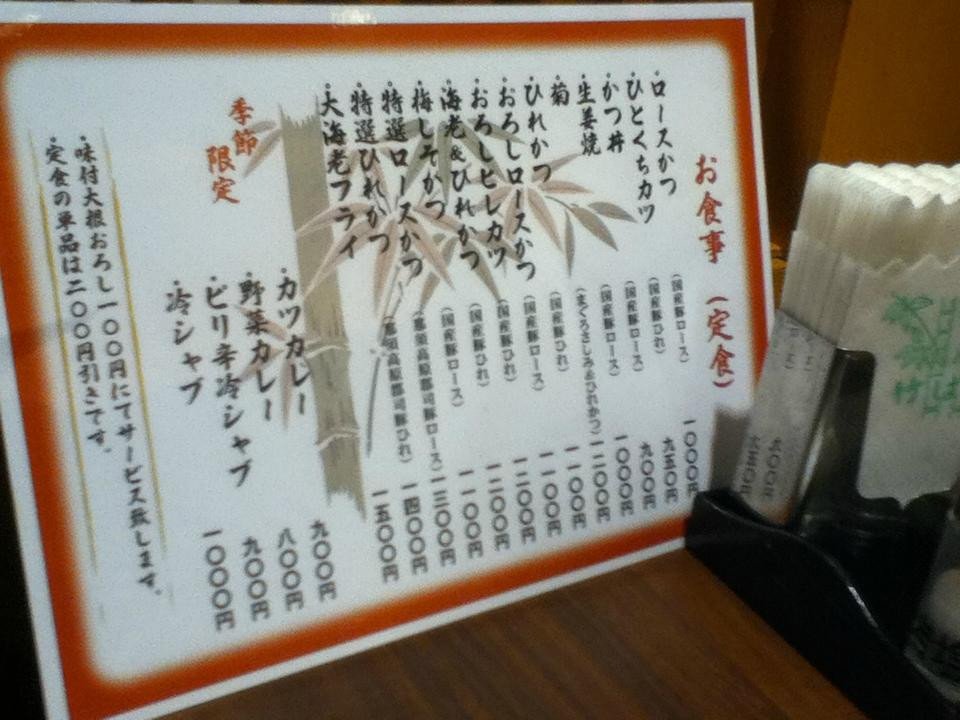 お食事(定食)
・ロースかつ (国産豚ロース) 一〇〇〇円
・ひとくちカツ (国産豚ひれ) 九五〇円
・かつ丼 (国産豚ロース) 九〇〇円
・生姜焼 (国産豚ロース) 一〇〇〇円
・菊 (まぐろさしみ&ひれかつ) 一二〇〇円
・ひれかつ (国産豚ひれ) 一一〇〇円
・おろしロースかつ (国産豚ロース) 一一〇〇円
・おろしヒレカツ (国産豚ひれ) 一二〇〇円
・海老&ひれかつ (国産豚ひれ) 一二〇〇円
・梅しそかつ (国産豚ロース) 一一〇〇円
・特選ロースかつ (那須高原郡司豚ロース) 一三〇〇円
・特選ひれかつ (那須高原郡司豚ひれ) 一四〇〇円
・大海老フライ 一五〇〇円
季節限定
・カツカレー 九〇〇円
・野菜カレー 八〇〇円
・ピリ辛冷シャブ 九〇〇円
・冷シャブ 一〇〇〇円
・味付大根おろし一〇〇円にてサービス致します。
・定食の単品は二〇〇円引きです。